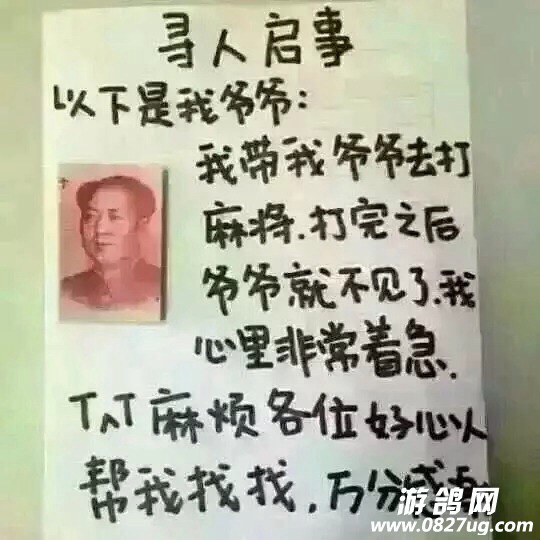 寻人启事
以下是我爷爷：
我带我爷爷去打
麻将.打完之后
爷爷就不见了.我
心里非常着急.
TAT麻烦各位好心人
帮我找找,万分感
游鸽网
www.0827ug.com